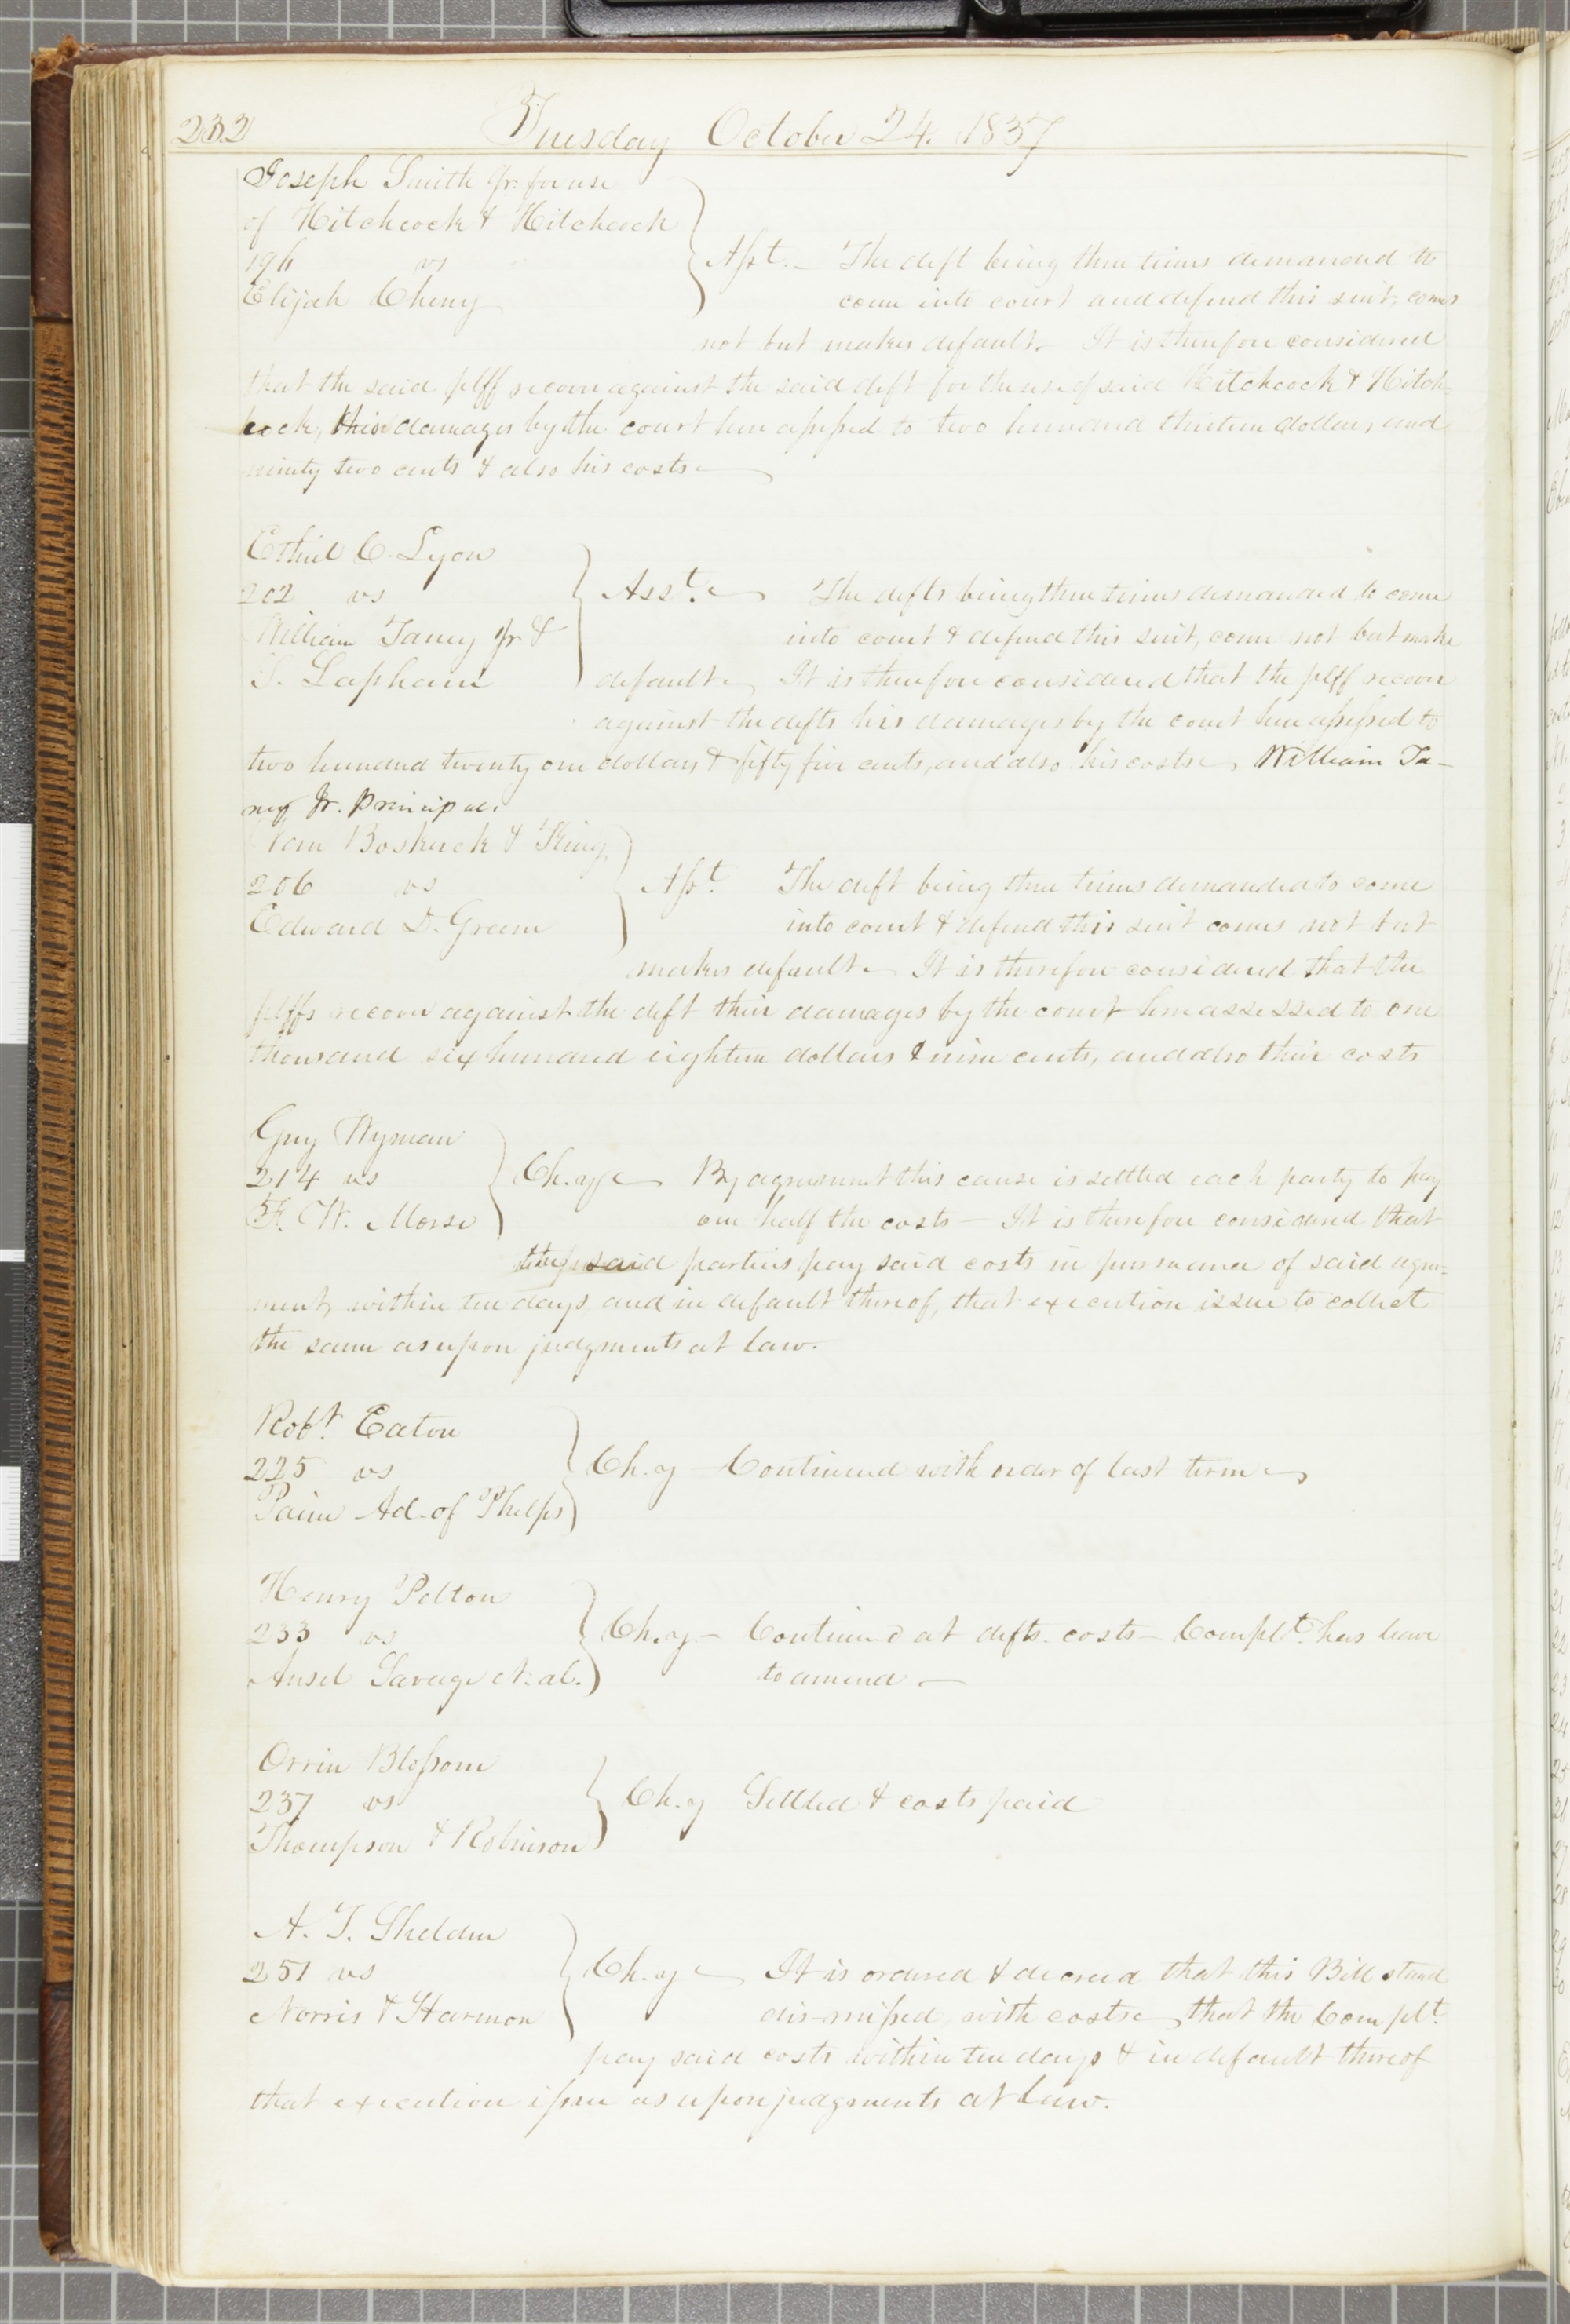 232 Tuesday October 24. 1837
Joseph Smith Jr. for use
of Hitchcock & Hitchcock
196 vs
Elijah Cheny
Asst. The deft being three times demanded to
come into court and defend this suit, comes
not but makes default. It is therefore considered
that the said plff recover against the said deft for the use of said Hitchcock & Hitch=
cock, their damages by the court here assessed to two hundred thirteen dollars, and
ninety two cents & also his costs
Ethiel C. Lyon
202 vs
William Taney Jr &
S. Lapham
Asst. The defts being three times demanded to come
into court & defend this suit, come not but make
default. It is therefore considered that the plff recover
against the defts his damages by the court here assessed to
two hundred twenty one dollars & fifty five cents, and also his costs, William Ta-
ney Jr. Principal.
VanBoskirck & King
206 vs
Edward D. Greene
Asst. The deft being three times demanded to come
into court & defend this suit comes not but
makes default. It is therefore considered that the
plffs recover against the deft their damages by the court here assessed to one
thousand six hundred eighteen dollars & nine cents, and also their costs
Guy Wyman
214 vs
W. Morse
Ch.y By agreement this cause is settled each party to pay
one half the costs - It is therefore considered that
the said parties pay said costs in pursuance of said agree=
ment, within ten days and in default thereof, that execution issue to collect
the same as upon judgments at law.
Robt. Eaton
225 vs
Paine Ad. of Phelps
Ch.y Continued with order of last term
Henry Pelton
233 vs
Ansel Savage et. al.
Ch.y - Continued at defts. costs - Complt. has leave
to amend -
Orrin Blossom
237 vs
Thompson & Robinson
Ch.y Settled & costs paid
A. T. Shelden
251 vs
Norris & Harmon
Ch.y It is ordered & decreed that this Bill stand
dismissed with costs that the Complt.
pay said costs within ten days & in default thereof
that execution issue as upon judgments at law.